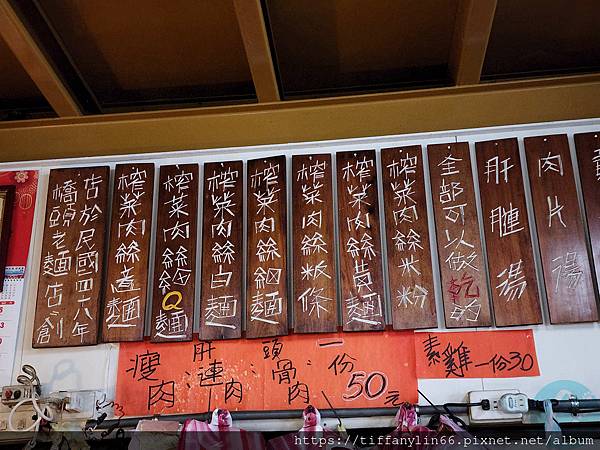 橋頭老麵店創
店於民國四十八年
榨菜肉絲意麵
榨菜肉絲細Q麵
榨菜肉絲白麵
榨菜肉絲細麵
榨菜肉絲粄條
榨菜肉絲黃麵
榨菜肉絲米粉
全部可以做乾的
肝腱湯
肉片湯
瘦肉:肝連肉:頭骨肉 一份50元
素雞一份30
https://tiffanylin66.pixnet.net/album